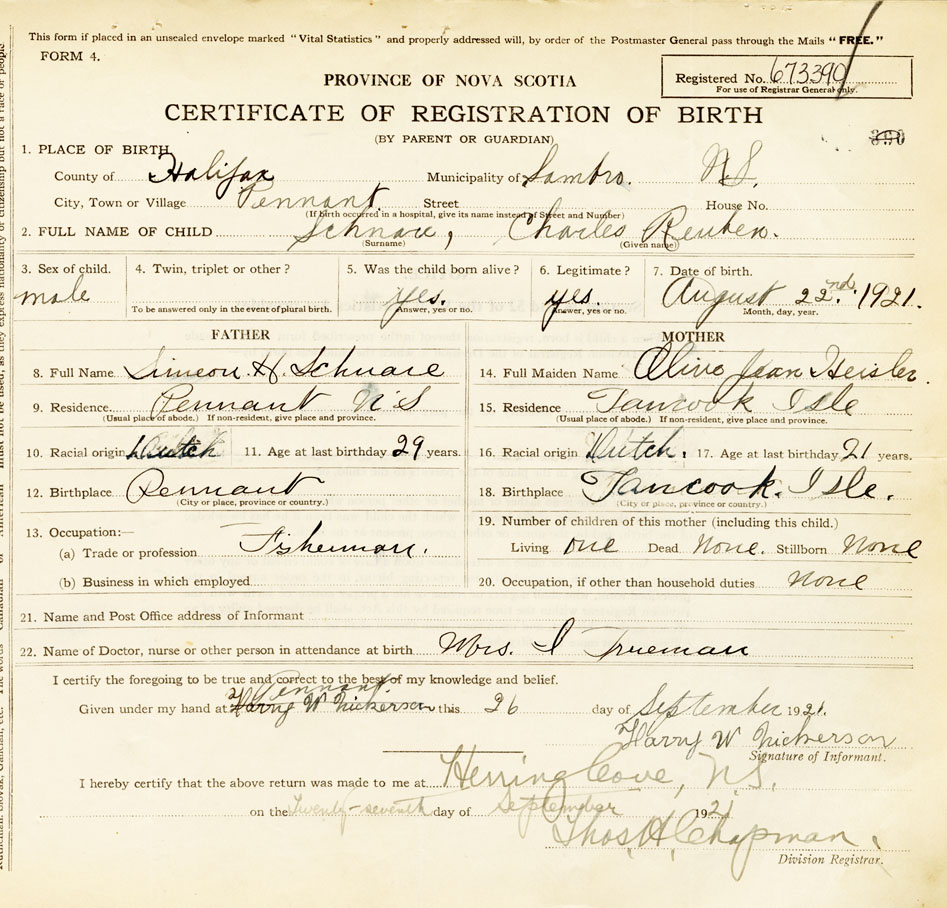 This form if placed in an unsealed envelope marked "Vital Statistics" and properly addressed will, by order of the Postmaster General pass through the Mails "FREE."
FORM 4.
Registered No. 673390
For use of Registrar General only.
PROVINCE OF NOVA SCOTIA
CERTIFICATE OF REGISTRATION OF BIRTH
(BY PARENT OR GUARDIAN)
1. PLACE OF BIRTH
County of Halifax Municipality of Sambro. N.S.
City, Town or Village Pennant. Street House No.
(If birth occurred in a hospital, give its name instead of Street and Number)
2. FULL NAME OF CHILD Schnare, Charles Reuben.
(Surname) (Given name)
3. Sex of child. 4. Twin, triplet or other? 5. Was the child born alive? 6. Legitimate? 7. Date of birth.
male yes. yes. August 22nd. 1921.
To be answered only in the event of plural birth. Answer, yes or no. Answer, yes or no. Month, day, year.
FATHER MOTHER
8. Full Name Simeon H. Schnare 14. Full Maiden Name Olive Jean Heisler.
9. Residence. Pennant N S 15. Residence Tancook Isle
(Usual place of abode.) If non-resident, give place and province. (Usual place of abode.) If non-resident, give place and province.
10. Racial origin Dutch 11. Age at last birthday 29 years. 16. Racial origin Dutch. 17. Age at last birthday 21 years.
12. Birthplace Pennant 18. Birthplace Tancook. Isle.
(City or place, province or country.) (City or place, province or country.)
13. Occupation:— 19. Number of children of this mother (including this child.)
(a) Trade or profession Fisherman. Living one Dead None. Stillborn None
(b) Business in which employed 20. Occupation, if other than household duties None
21. Name and Post Office address of Informant
22. Name of Doctor, nurse or other person in attendance at birth Mrs. I Trueman
I certify the foregoing to be true and correct to the best of my knowledge and belief.
Pennant.
Given under my hand at Harry W Nickerson this 26 day of September 1921.
Harry W Nickerson
Signature of Informant.
I hereby certify that the above return was made to me at Herring Cove, N.S.
on the Twenty-seventh day of September 1921
Thos. H. Chapman.
Division Registrar.